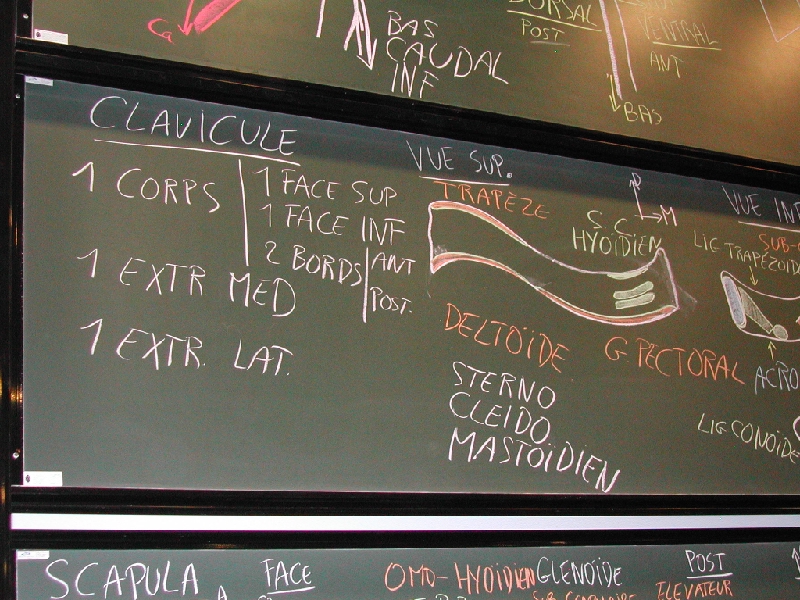 Ca
BAS
CAUDAL
INF
DORSAL
POST
VENTRAL
ANT
BAS
CLAVICULE
1 CORPS
1 FACE SUP
1 FACE INF
2 BORDS
ANT
POST.
1 EXTR MED
1 EXTR. LAT.
VUE SUP.
TRAPÈZE
S.C.
HYOÏDIEN
M
DELTOÏDE
G PECTORAL
STERNO
CLEIDO
MASTOÏDIEN
VUE INF
LIG TRAPÉZOÏD
ACRO
LIG CONOÏDE
SCAPULA
FACE
OMO-HYOÏDIEN
GLENOÏDE
POST
ELEVATEUR